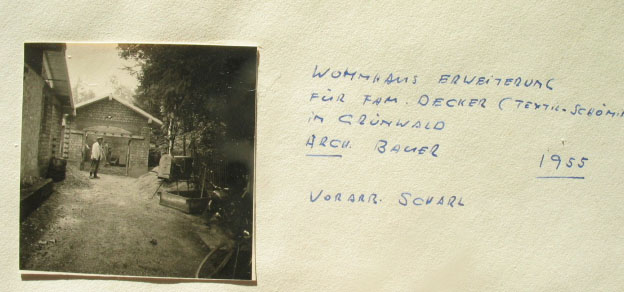 WOHNHAUS ERWEITERUNG
FÜR FAM. DECKER (TEXTIL-SCHÖN
IN GRÜNWALD
ARCH. BAUER 1955
VORARB. SCHARL